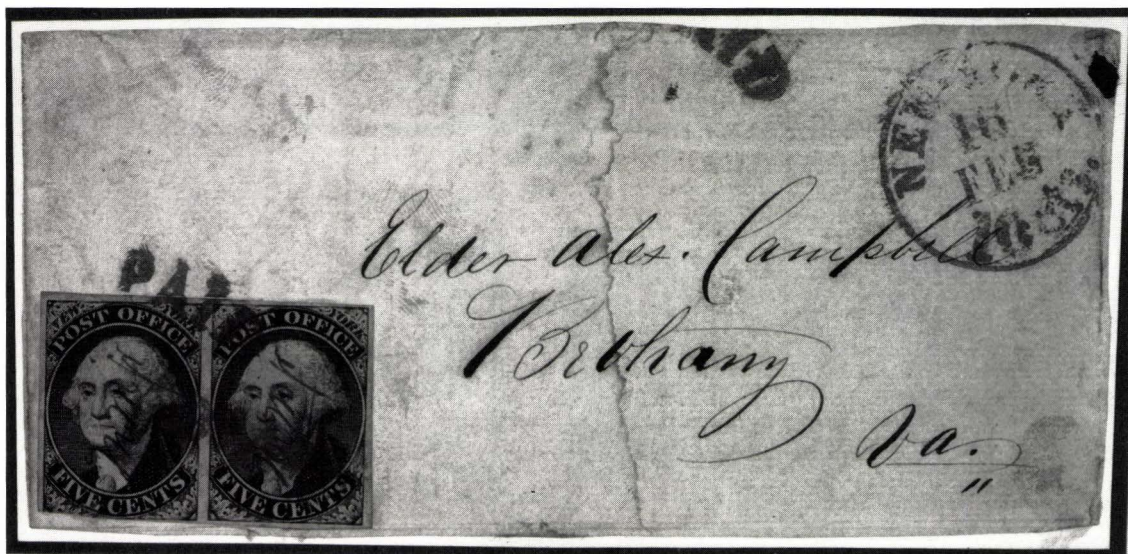 NEW
16
FEB
10 cts.
Elder Alex. Campbell
Bethany
Va.
"
PAI
POST OFFICE
FIVE CENTS
POST OFFICE
FIVE CENTS